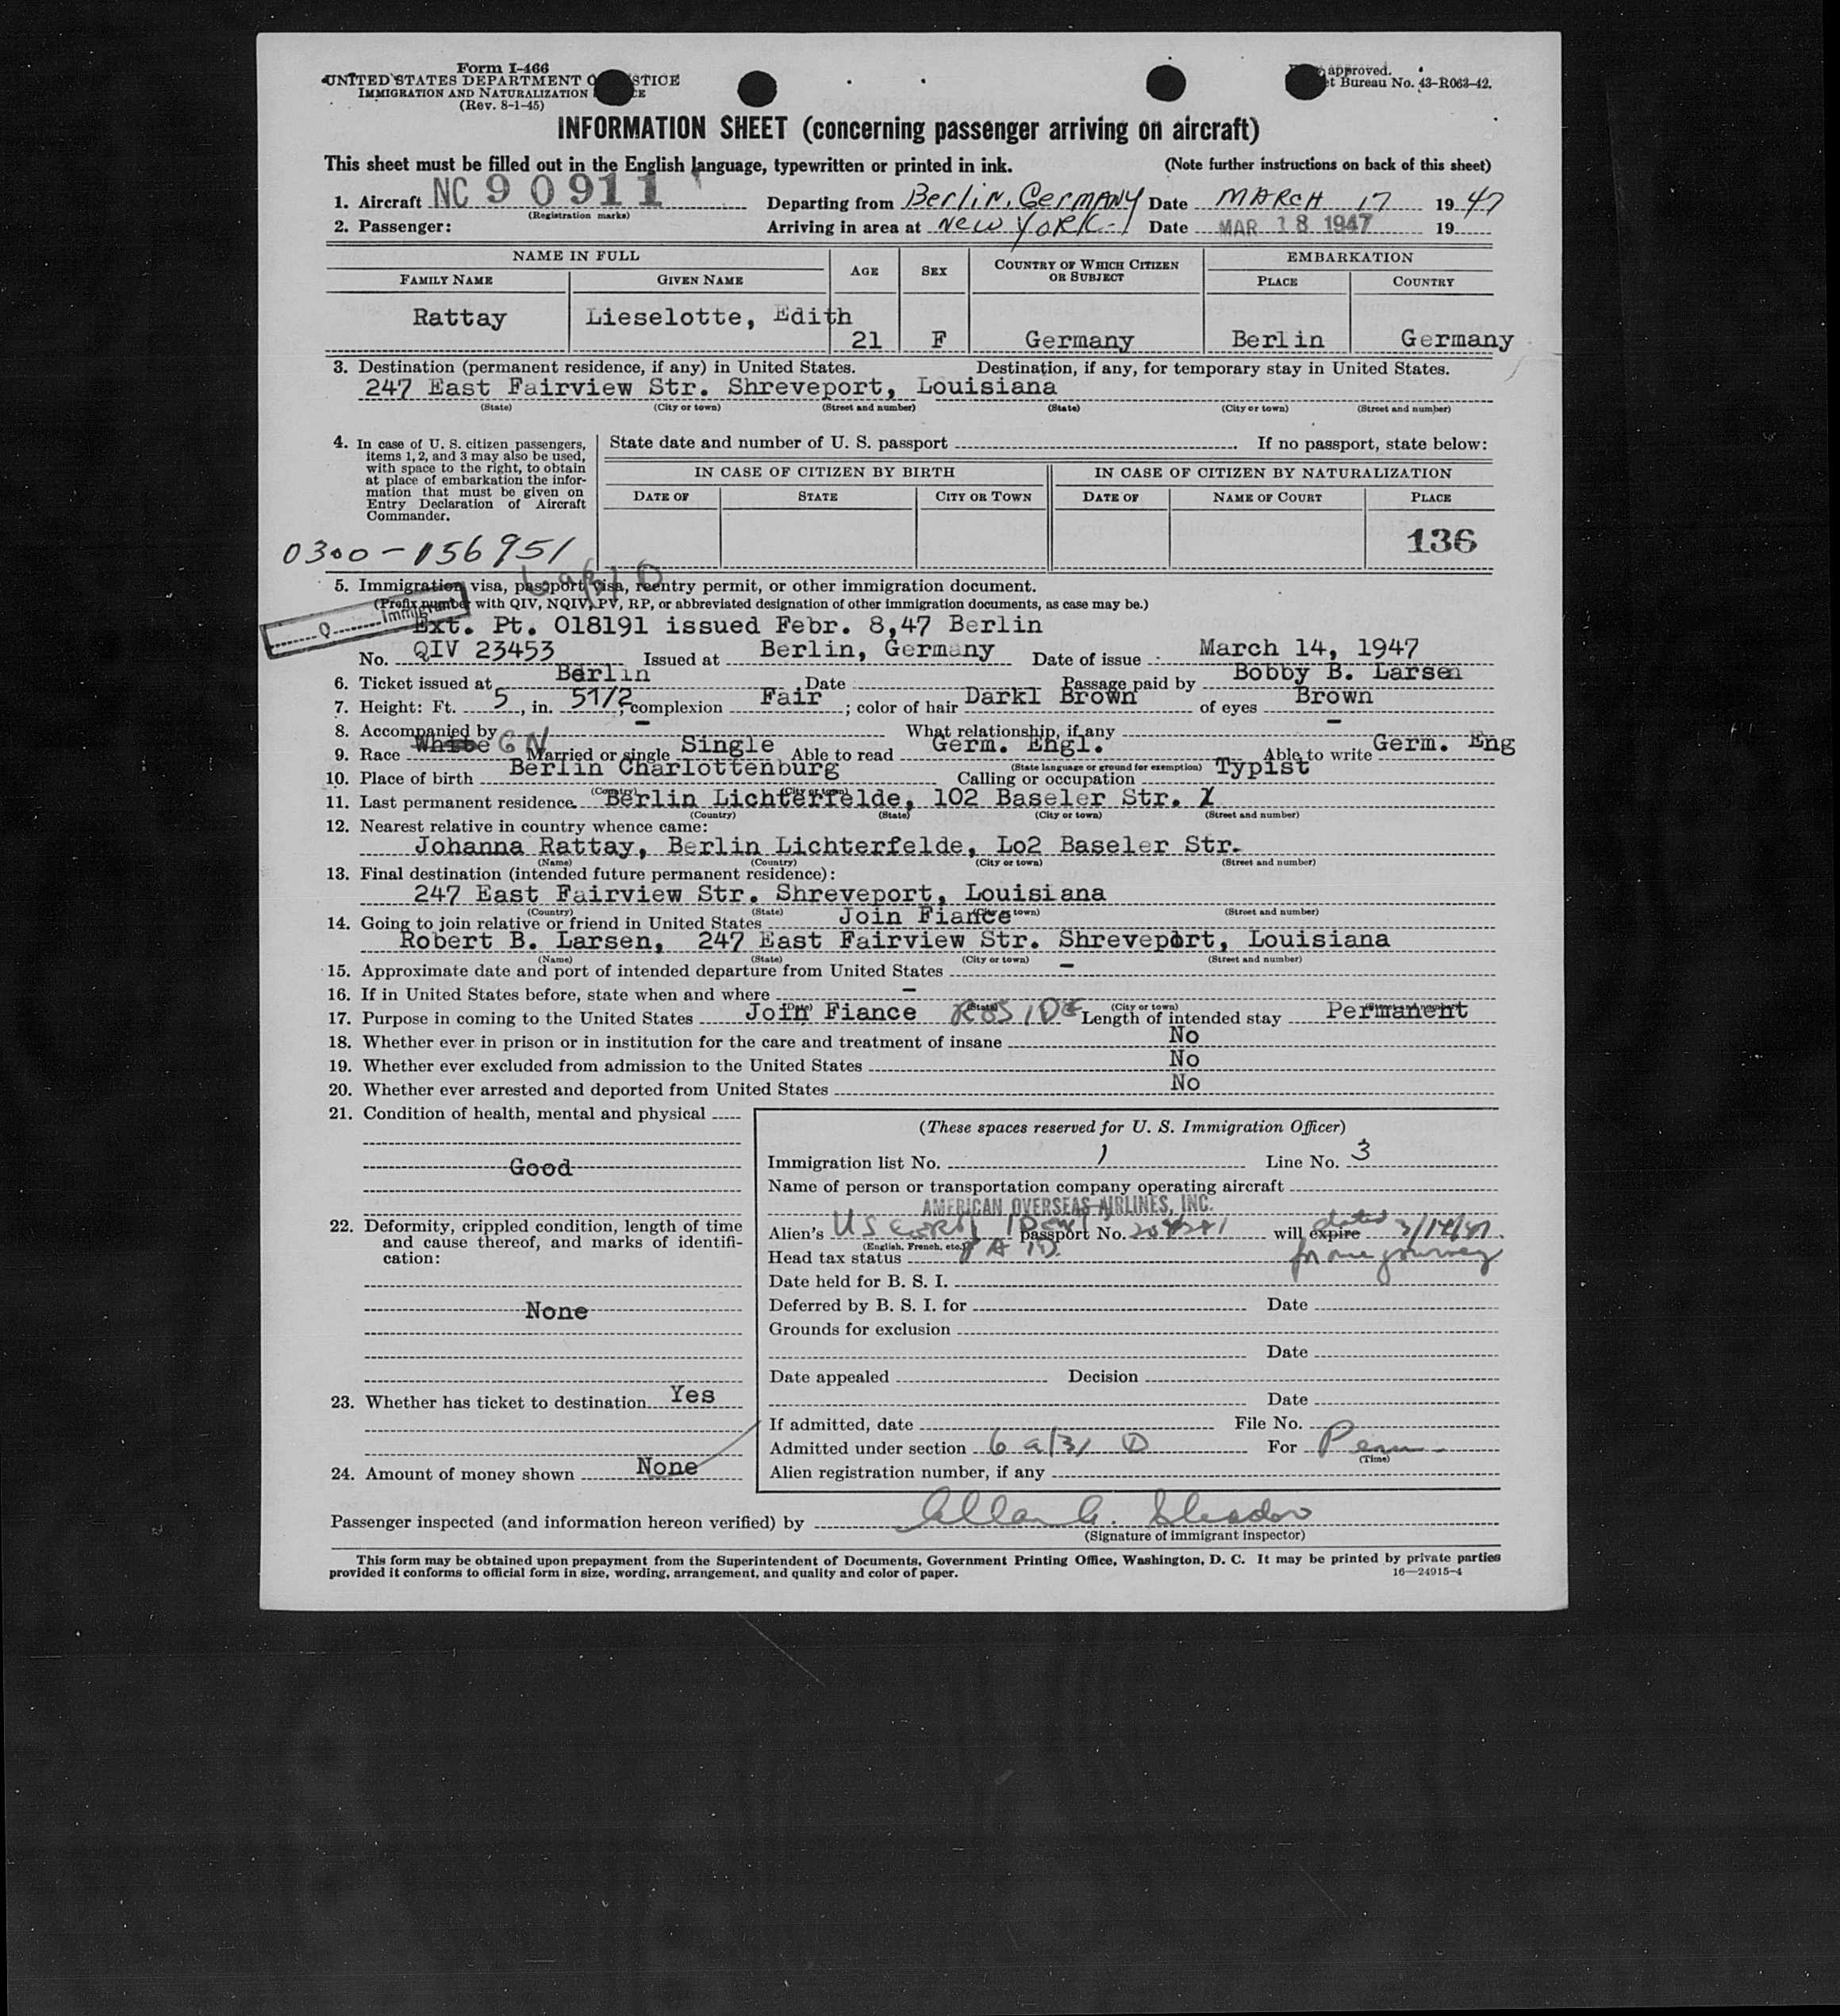 Form I-466
UNITED STATES DEPARTMENT OF JUSTICE
IMMIGRATION AND NATURALIZATION
(Rev. 8-1-45)
approved.
t Bureau No. 43-R063-42.
INFORMATION SHEET (concerning passenger arriving on aircraft)
This sheet must be filled out in the English language, typewritten or printed in ink. (Note further instructions on back of this sheet)
1. Aircraft NC 90911 Departing from Berlin, Germany Date MARCH 17 1947
(Registration marks)
2. Passenger: Arriving in area at New York Date MAR 18 1947 19
NAME IN FULL AGE SEX COUNTRY OF WHICH CITIZEN OR SUBJECT EMBARKATION
FAMILY NAME GIVEN NAME PLACE COUNTRY
Rattay Lieselotte, Edith
21 F Germany Berlin Germany
3. Destination (permanent residence, if any) in United States. Destination, if any, for temporary stay in United States.
247 East Fairview Str. Shreveport, Louisiana
(State) (City or town) (Street and number) (State) (City or town) (Street and number)
4. In case of U. S. citizen passengers, items 1, 2, and 3 may also be used, with space to the right, to obtain at place of embarkation the information that must be given on Entry Declaration of Aircraft Commander.
State date and number of U. S. passport If no passport, state below:
IN CASE OF CITIZEN BY BIRTH IN CASE OF CITIZEN BY NATURALIZATION
DATE OF STATE CITY OR TOWN DATE OF NAME OF COURT PLACE
136
0300-156951
6 a(3) D
5. Immigration visa, passport visa, reentry permit, or other immigration document.
(Prefix number with QIV, NQIV, PV, RP, or abbreviated designation of other immigration documents, as case may be.)
Q Immigrant
Ext. Pt. 018191 issued Febr. 8,47 Berlin
No. QIV 23453 Issued at Berlin, Germany Date of issue March 14, 1947
6. Ticket issued at Berlin Date Passage paid by Bobby B. Larsen
7. Height: Ft. 5, in. 51/2; complexion Fair; color of hair Darkl Brown of eyes Brown
8. Accompanied by - What relationship, if any -
9. Race White GN Married or single Single Able to read Germ. Engl. Able to write Germ. Eng
(State language or ground for exemption)
10. Place of birth Berlin Charlottenburg Calling or occupation Typist
(Country) (City or town)
11. Last permanent residence Berlin Lichterfelde, 102 Baseler Str.
(Country) (State) (City or town) (Street and number)
12. Nearest relative in country whence came:
Johanna Rattay, Berlin Lichterfelde, Lo2 Baseler Str.
(Name) (Country) (City or town) (Street and number)
13. Final destination (intended future permanent residence):
247 East Fairview Str. Shreveport, Louisiana
(Country) (State) (City or town) (Street and number)
14. Going to join relative or friend in United States Join Fiance
Robert B. Larsen, 247 East Fairview Str. Shreveport, Louisiana
(Name) (State) (City or town) (Street and number)
15. Approximate date and port of intended departure from United States -
16. If in United States before, state when and where -
(Date) (State) (City or town) (Street and number)
17. Purpose in coming to the United States Join Fiance RESIDE Length of intended stay Permanent
18. Whether ever in prison or in institution for the care and treatment of insane No
19. Whether ever excluded from admission to the United States No
20. Whether ever arrested and deported from United States No
21. Condition of health, mental and physical
Good
22. Deformity, crippled condition, length of time and cause thereof, and marks of identification:
None
23. Whether has ticket to destination Yes
24. Amount of money shown None
(These spaces reserved for U. S. Immigration Officer)
Immigration list No. 1 Line No. 3
Name of person or transportation company operating aircraft
AMERICAN OVERSEAS AIRLINES, INC.
Alien's US passport No. will expire dated 3/14/47
(English, French, etc.)
Head tax status PAID for one journey
Date held for B. S. I.
Deferred by B. S. I. for Date
Grounds for exclusion
Date
Date appealed Decision
Date
If admitted, date File No.
Admitted under section 6 a/3/ D For Perm
(Time)
Alien registration number, if any
Passenger inspected (and information hereon verified) by
(Signature of immigrant inspector)
This form may be obtained upon prepayment from the Superintendent of Documents, Government Printing Office, Washington, D. C. It may be printed by private parties
provided it conforms to official form in size, wording, arrangement, and quality and color of paper. 16—24915-4